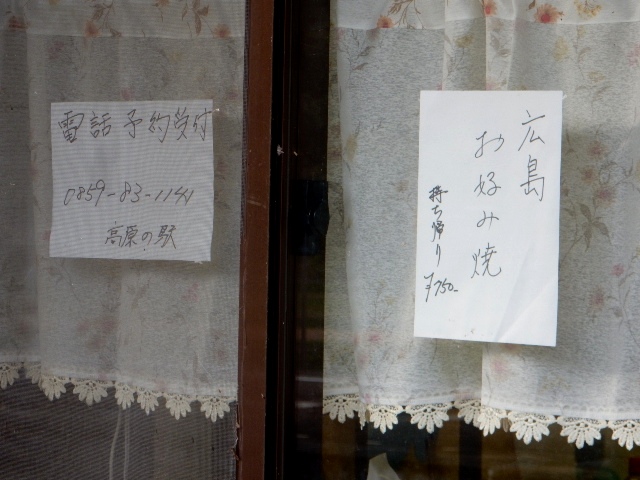 電話予約受付
0859-83-1141
高原の駅
広島
お好み焼
持ち帰り
¥750-